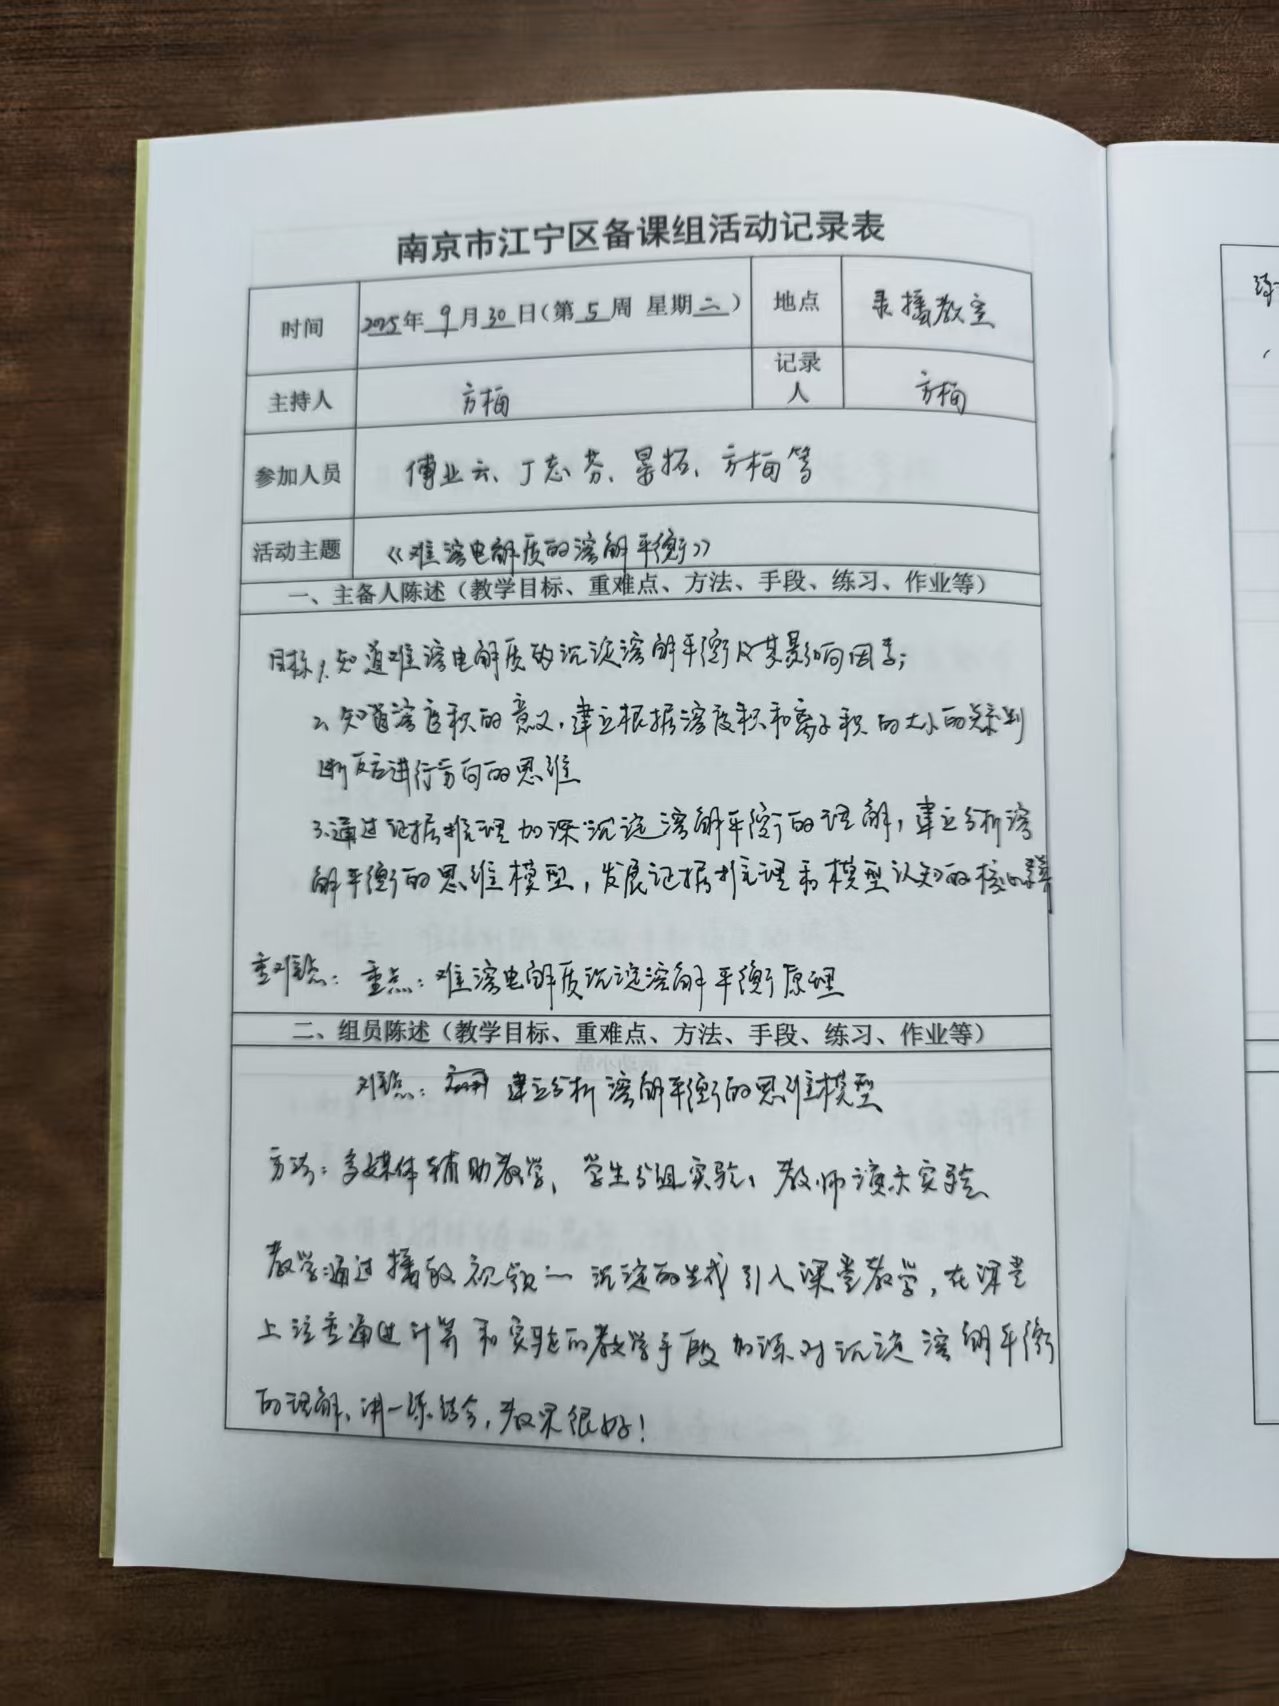 南京市江宁区备课组活动记录表
时间 2025年 9 月 30 日(第 5 周 星期 二 ) 地点 录播教室
主持人 方梅 记录人 方梅
参加人员 傅业云、丁志芬、景拓、方梅等
活动主题 《难溶电解质的溶解平衡》
一、主备人陈述(教学目标、重难点、方法、手段、练习、作业等)
目标:1.知道难溶电解质的沉淀溶解平衡及其影响因素;
2.知道溶度积的意义,建立根据溶度积和离子积的大小的关系判
断反应进行方向的思维
3.通过证据推理加深沉淀溶解平衡的理解,建立分析溶
解平衡的思维模型,发展证据推理和模型认知的核心素养
重难点:重点:难溶电解质沉淀溶解平衡原理
二、组员陈述(教学目标、重难点、方法、手段、练习、作业等)
难点: 建立分析溶解平衡的思维模型
方法:多媒体辅助教学、学生分组实验、教师演示实验
教学通过播放视频一沉淀的生成引入课堂教学,在课堂
上注重通过计算和实验的教学手段加深对沉淀溶解平衡
的理解,讲一练结合,效果很好!